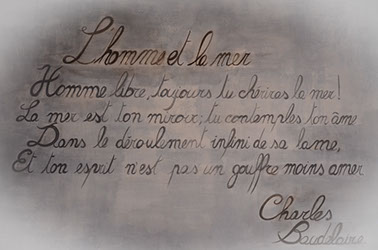 L'homme et la mer
Homme libre, toujours tu chériras la mer!
La mer est ton miroir; tu contemples ton âme
Dans le déroulement infini de sa lame,
Et ton esprit n'est pas un gouffre moins amer
Charles
Baudelaire